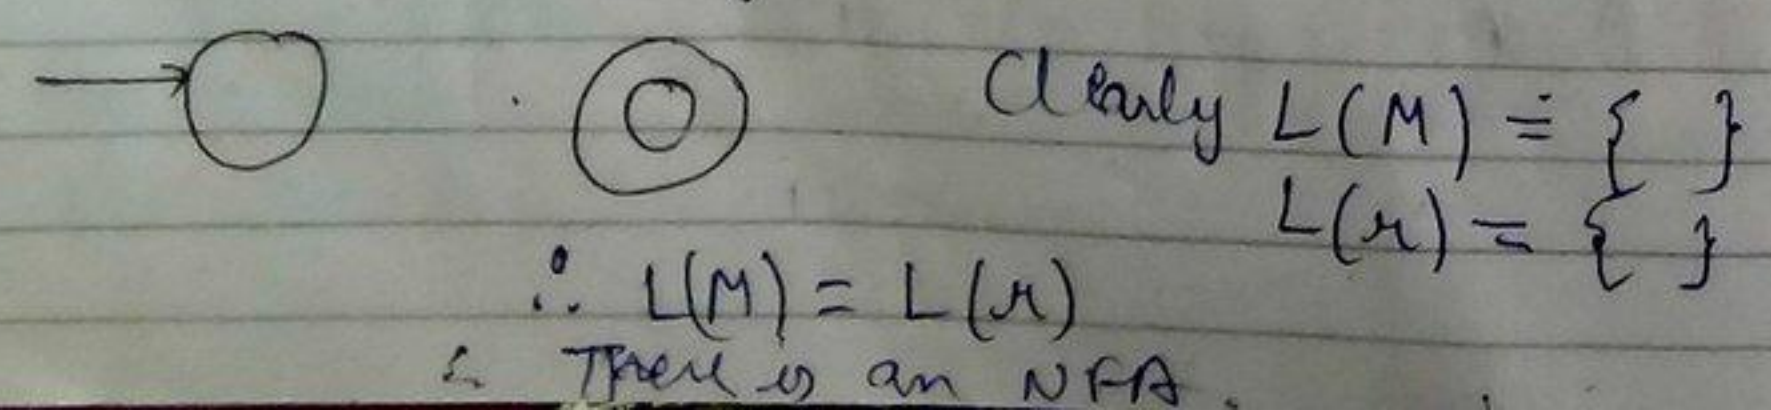 Clearly L(M) = { }
L(r) = { }
∴ L(M) = L(r)
∴ There is an NFA.